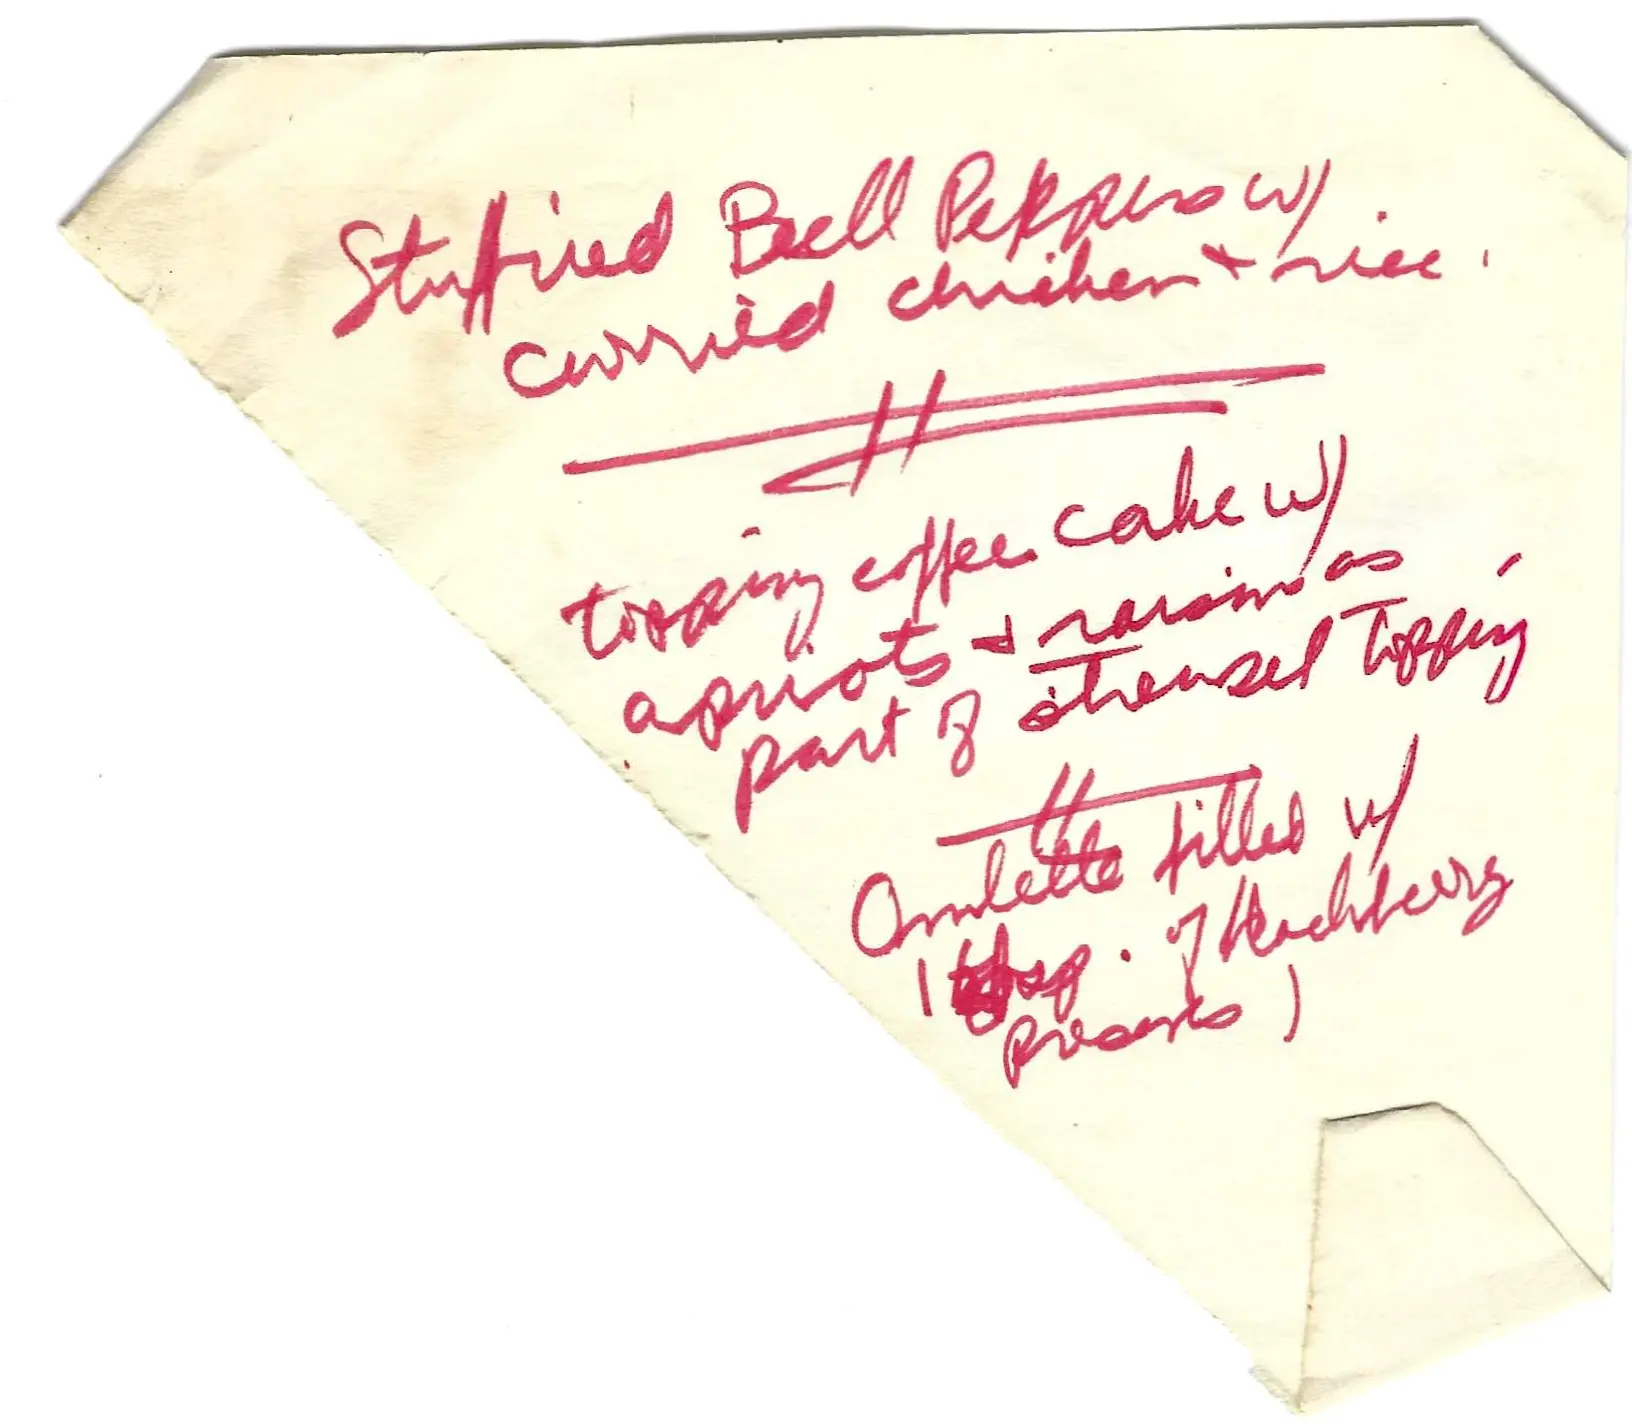 Stuffed Bell Peppers w/
curried chicken + rice.
topping coffee cake w/
apricots + raisins as
part of streusel topping
Omelette filled w/
(tbsp. of blackberry
preserves)